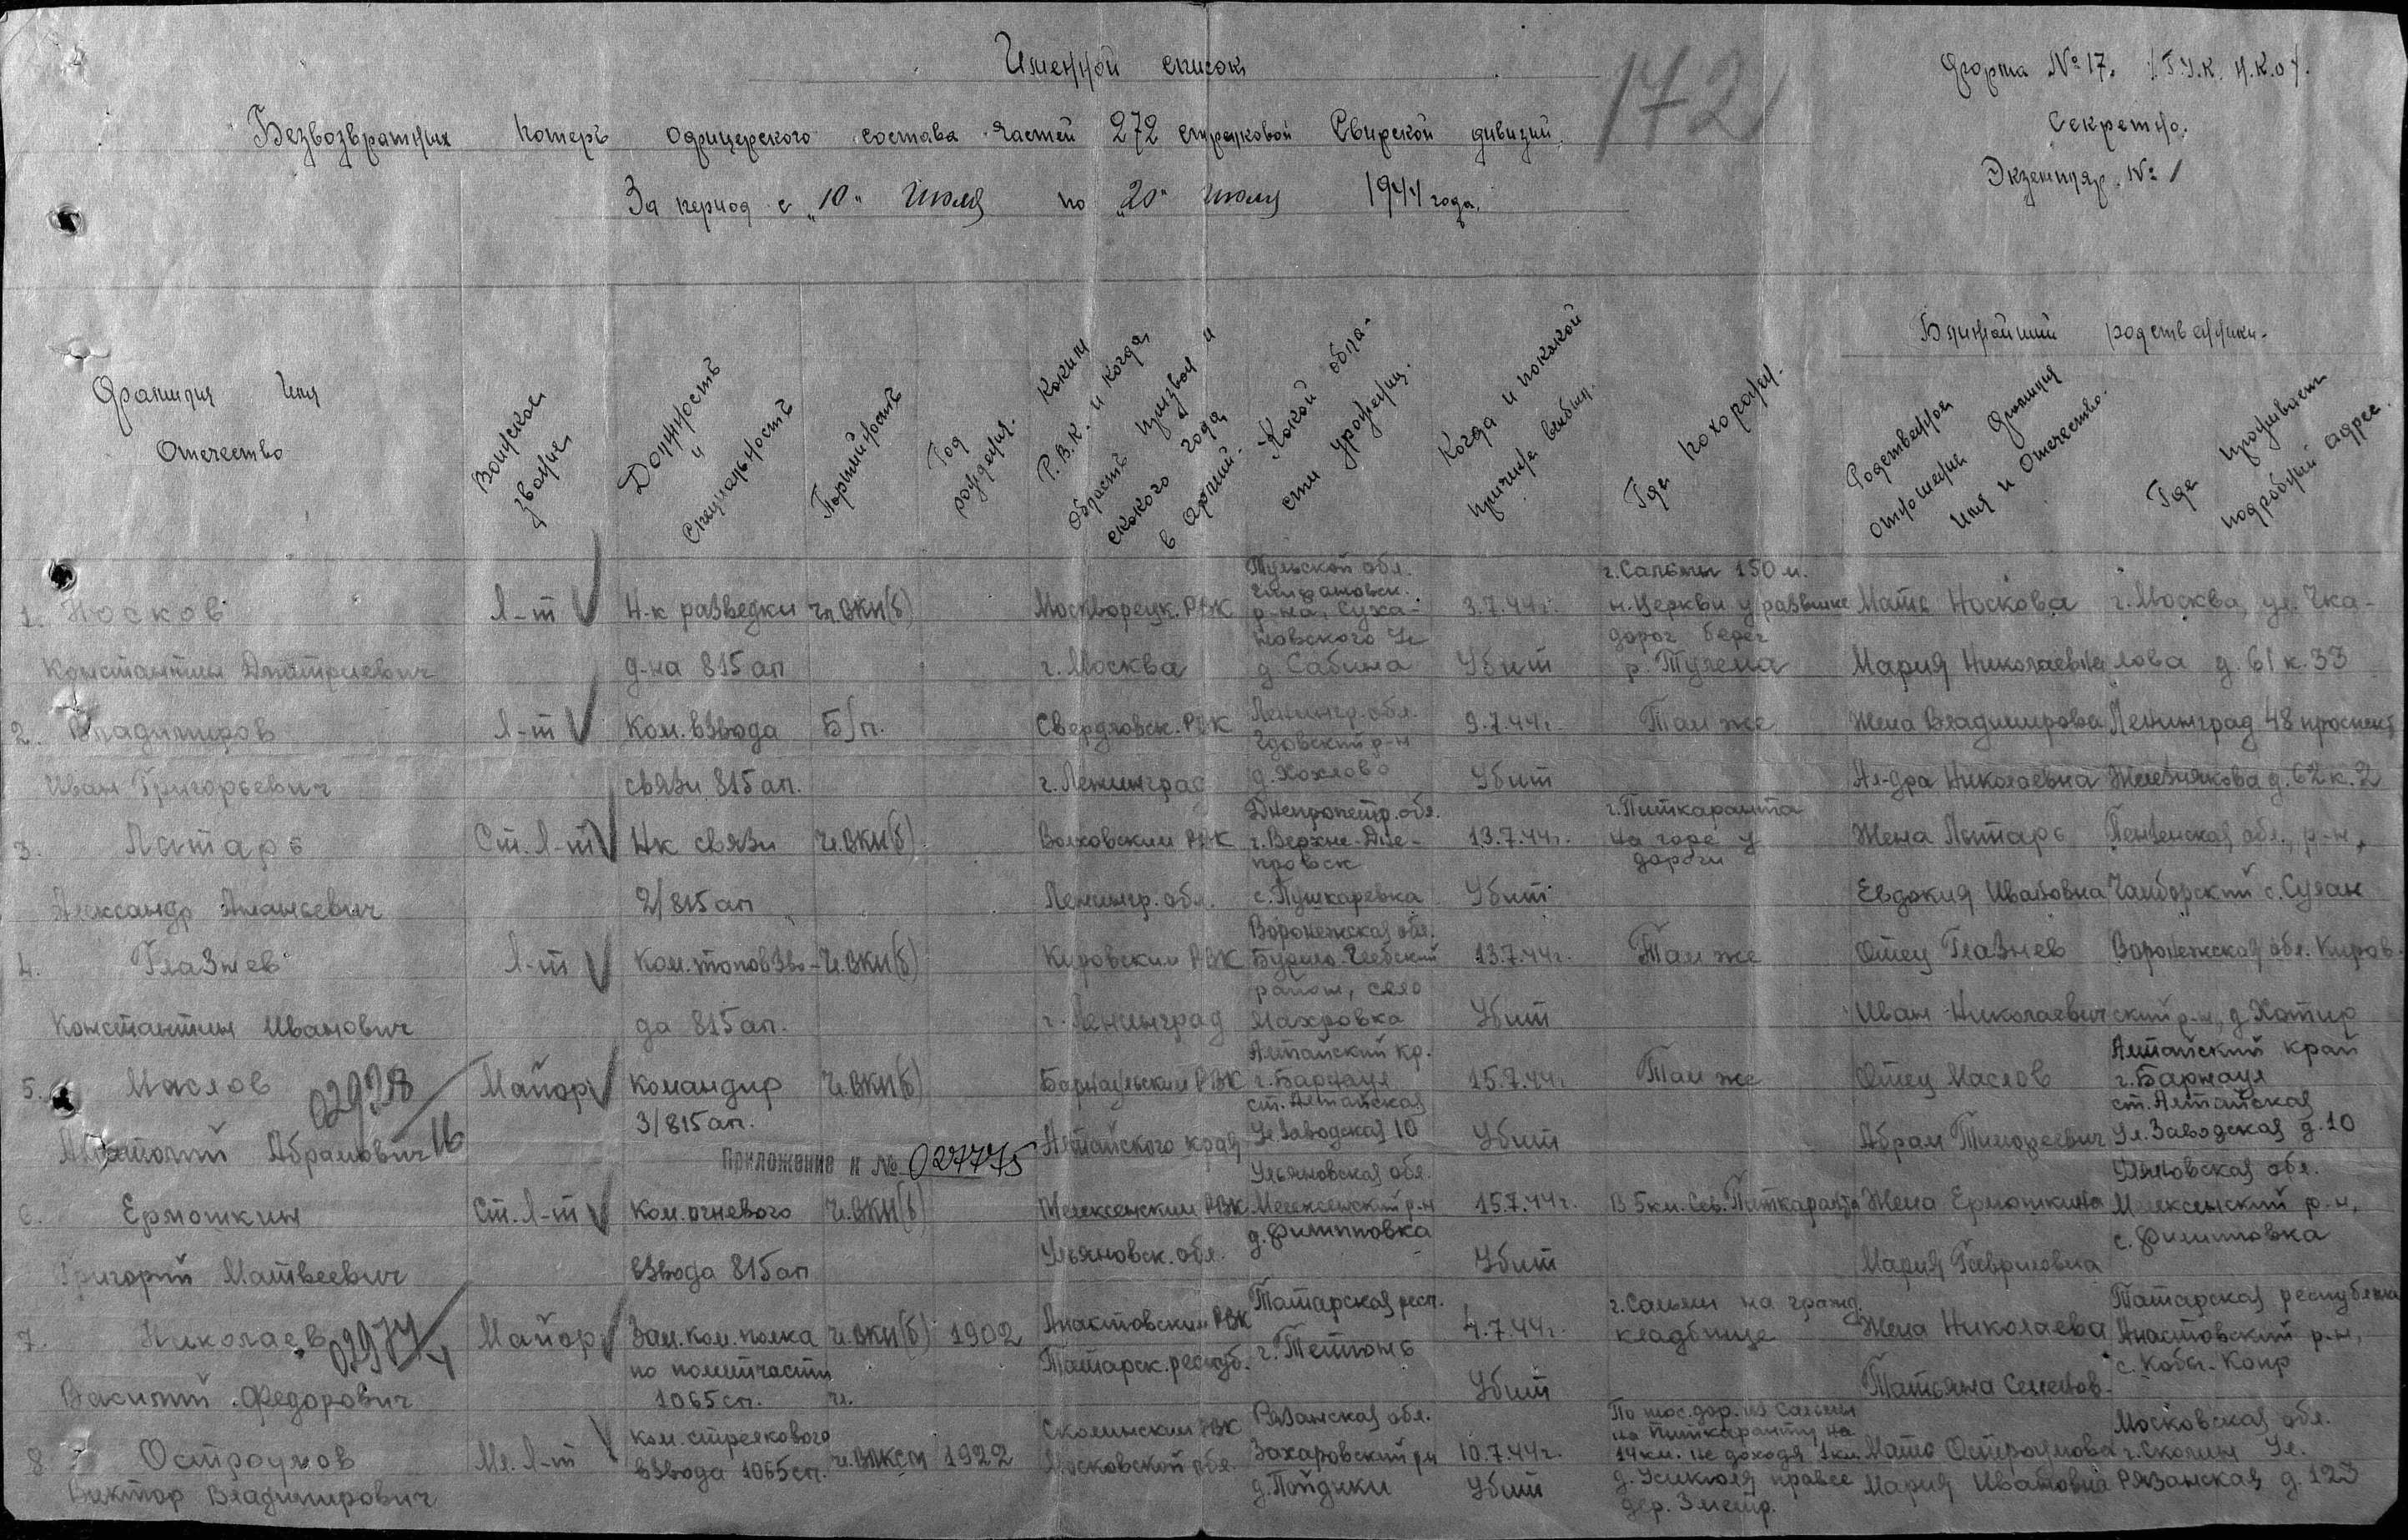 Именной список
172
Форма № 17. /Г.У.К. Н.К.О/.
Безвозвратных потерь офицерского состава частей 272 стрелковой Свирской дивизии.
Секретно.
Экземпляр № 1
За период с "10" июля по "20" июля 1944 года.
Фамилия Имя
Отчество
Воинское
звание
Должность
и
специальность
Партийность
Год
рождения.
Каким
Р.В.К. и когда,
область призван и
какого года
в армии.
Какой обла-
сти уроженец.
Когда и по какой
причине выбыл.
Где похоронен.
Ближайший родственник.
Родственное
отношение фамилия
имя и отчество.
Где проживает
подробный адрес.
1. Носков
Константин Дмитриевич
Л-т
Н-к разведки
д-на 815 ап
чл. ВКП(б)
Москворецк. РВК
г. Москва
Тульской обл.
р-на, Суха-
новского
д Сабина
3.7.44 г.
Убит
г. Сальми 150 м.
н. Церкви у развилке
дорог берег
р. Тулема
Мать Носкова
Мария Николаевна
г. Москва, ул. Чка-
лова д. 61 к. 33
2. Владимиров
Иван Григорьевич
Л-т
Ком. взвода
связи 815 ап.
Б/п.
Свердловск. РВК
г. Ленинград
Ленингр. обл.
Гдовский р-н
д. Хохлово
9.7.44 г.
Убит
Там же
Жена Владимирова
Ал-дра Николаевна
Ленинград 48 проспект
Железнякова д. 62 к. 2
3. Лытарь
Александр Ананьевич
Ст. Л-т
Нк связи
2/815 ап
Чл. ВКП(б)
Волховским РВК
Ленингр. обл.
Днепропетр. обл.
г. Верхне-Дне-
провск
с. Пушкаревка
13.7.44 г.
Убит
г. Питкаранта
на горе у
дороги
Жена Лытарь
Евдокия Ивановна
Пензенская обл., р-н,
Чамборский с. Сулак
4. Глазнев
Константин Иванович
Л-т
Ком. топовзво-
да 815 ап.
Чл. ВКП(б)
Кировским РВК
г. Ленинград
Воронежская обл.
район, село
Махровка
13.7.44 г.
Убит
Там же
Отец Глазнев
Иван Николаевич
Воронежская обл. Киров-
ский р-н, д Котир
5. Маслов
Анатолий Абрамович
02928/16
Майор
Командир
3/815 ап.
Чл. ВКП(б)
Барнаульским РВК
Алтайского края
Алтайский кр.
г. Барнаул
ст. Алтайская
Ул Заводская 10
15.7.44 г.
Убит
Там же
Отец Маслов
Абрам Тимофеевич
Алтайский край
г. Барнаул
ст. Алтайская
Ул. Заводская д. 10
Приложение к № 027775
6. Ермошкин
Григорий Матвеевич
Ст. Л-т
Ком. огневого
взвода 815 ап
Чл. ВКП(б)
Мелексенским РВК
Ульяновск. обл.
Ульяновская обл.
Мелексенский р-н
д. Филипповка
15.7.44 г.
Убит
В 5 км. Сев. Питкаранта
Жена Ермошкина
Мария Гавриловна
Ульяновская обл.
Мелексенский р-н,
с. Филипповка
7. Николаев
Василий Федорович
02974/4
Майор
Зам. ком. полка
по политчасти
1065 сп.
чл. ВКП(б)
1902
Апастовским РВК
Татарск. респуб.
Татарская респ.
г. Тетюнь
4.7.44 г.
Убит
г. Сальми на гражд.
кладбище
Жена Николаева
Татьяна Семенов.
Татарская республика
Апастовский р-н,
с. Кобы-Копр
8 Остроумов
Виктор Владимирович
Мл. Л-т
ком. стрелкового
взвода 1065 сп.
чл. ВЛКСМ
1922
Скопинским РВК
Московской обл.
Рязанская обл.
Захаровский рн
д. Пойдики
10.7.44 г.
Убит
По шос. дор. из Сальми
на Питкаранту на
14 км. не доходя 1 км
д. Усикюля правее
дер. 3 метр.
Мать Остроумова
Мария Ивановна
Московская обл.
г. Скопин Ул.
Рязанская д. 123